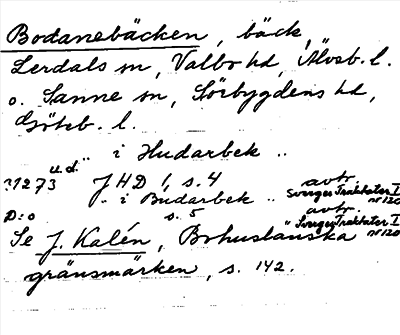 Bodanebäcken, bäck,
Lerdals sn, Valbo hd, Älvsb. l.
o. Sanne sn, Sörbygdens hd,
Göteb. l.
" i Hudarbek "
u.d.
?1273 JHD 1, s. 4 avtr.
Sveriges Traktater I
nr 120
" i Budarbek "
D:o s. 5 avtr.
Sveriges Traktater I
nr 120
Se J. Kalén, Bohuslänska
gränsmärken, s. 142.